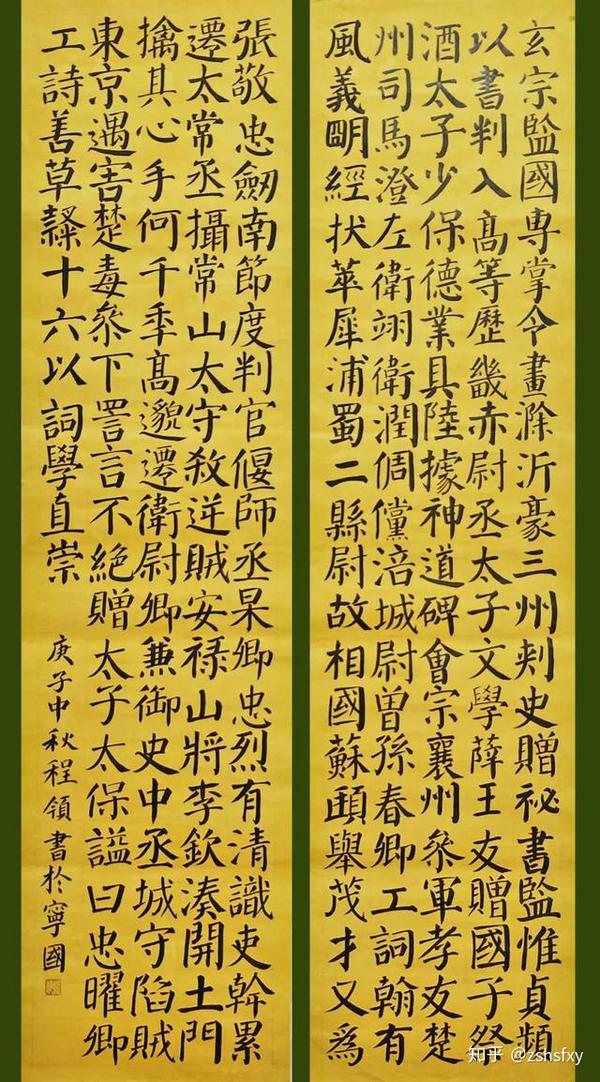 玄宗監國專掌令畫滁沂豪三州刾史贈祕書監惟貞頻
以書判入髙等歷畿赤尉丞太子文學薛王友贈國子祭
酒太子少保德業具陸據神道碑會宗襄州叅軍孝友楚
州司馬澄左衛翊衛潤倜儻涪城尉曽孫春卿工詞翰有
風義眀經拔萃犀浦蜀二縣尉故相國蘇頲舉茂才又為
張敬忠劒南節度判官偃師丞杲卿忠烈有清識吏幹累
遷太常丞攝常山太守殺逆賊安禄山將李欽湊開土門
擒其心手何千秊髙邈遷衛尉卿兼御史中丞城守陷賊
東京遇害楚毒叅下詈言不絶贈太子太保謚曰忠曜卿
工詩善草隸十六以詞學直崇
庚子中秋程領書於寧國
知乎 @zshsfxy